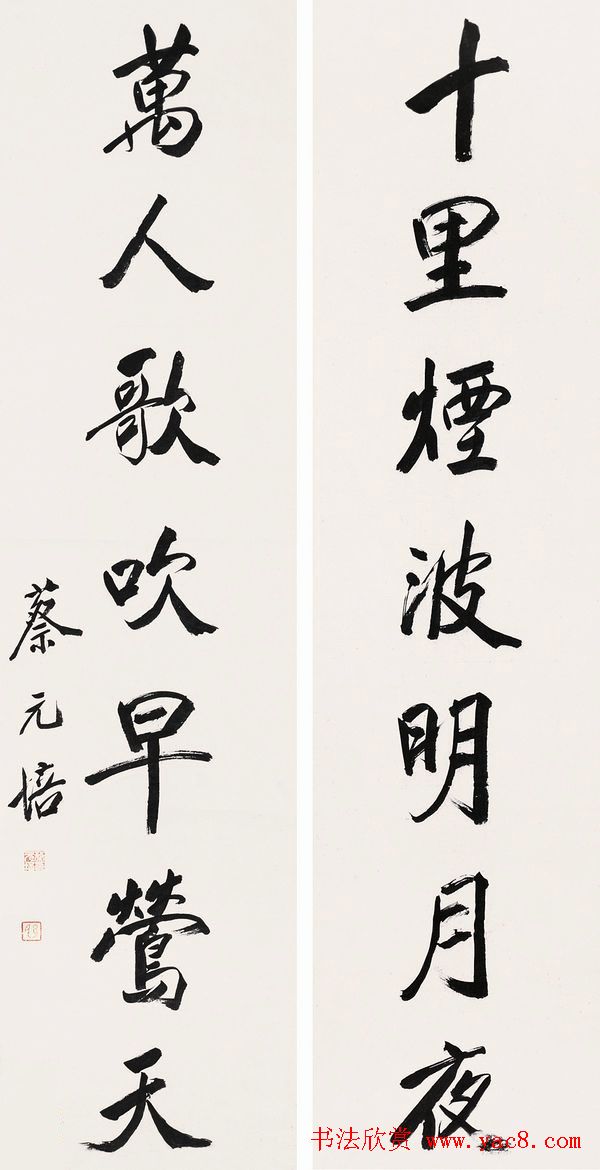 十里煙波明月夜
萬人歌吹早鶯天
蔡元培
书法欣赏 www.yac8.com